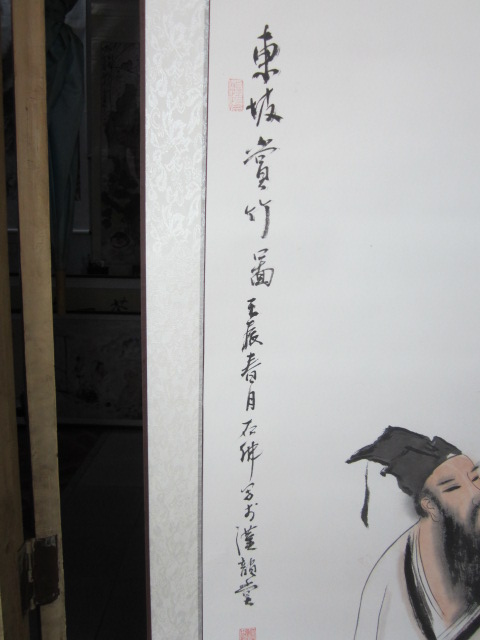 東坡賞竹圖壬辰春月石佛写於漢韻堂